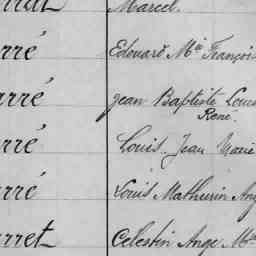 Marcel.
rré Edouard Mie François
rré Jean Baptiste Louis
René.
rré Louis Jean Marie
rré Louis Mathurin Ang
rret Celestin Ange Mie